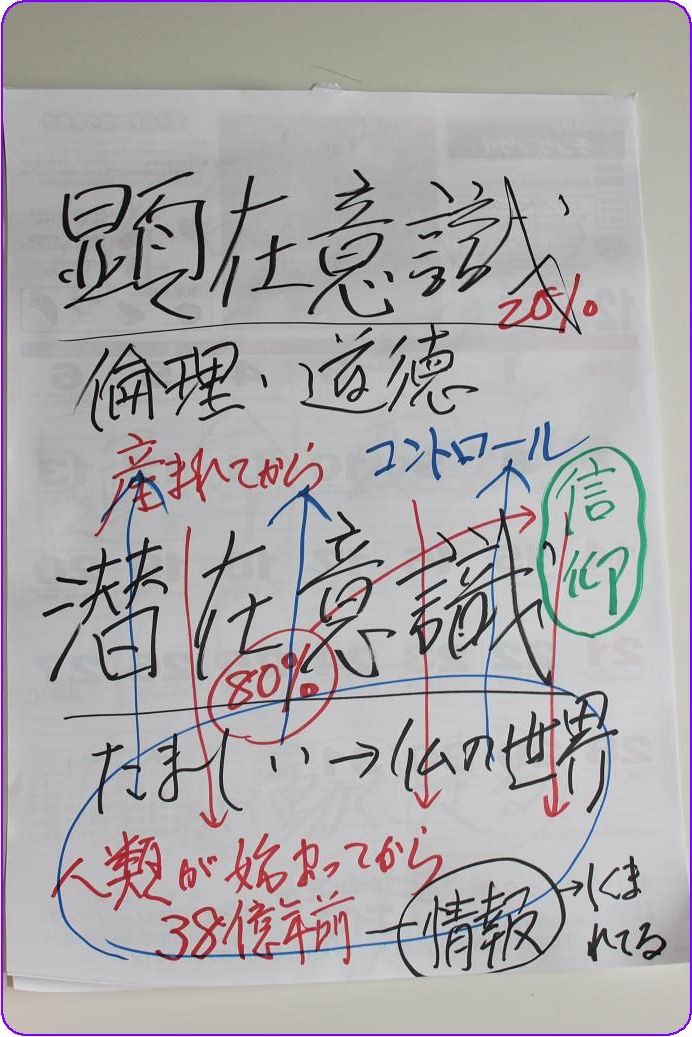 顕在意識
20%
倫理・道徳
産まれてから
コントロール
信仰
潜在意識
80%
たましい→仏の世界
人類が始まってから
38億年前
情報
→くま
れてる